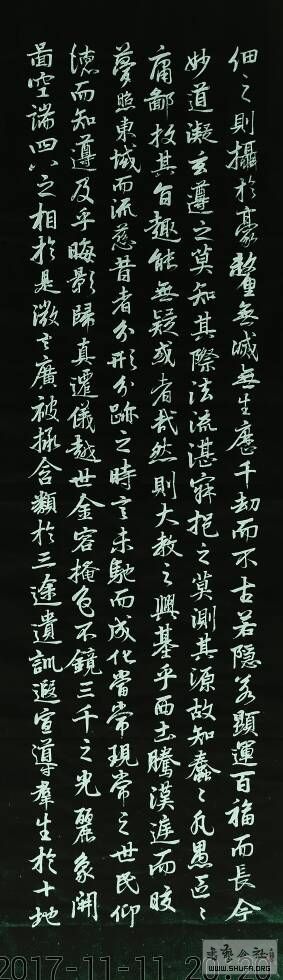 細之則攝於豪釐無滅無生歷千劫而不古若隱若顯運百福而長今
妙道凝玄遵之莫知其際法流湛寂挹之莫測其源故知蠢〻凡愚區〻
庸鄙投其旨趣能無疑或者哉然則大教之興基乎西土騰漢庭而皎
夢照東域而流慈昔者分形分跡之時言未馳而成化當常現常之世民仰
德而知遵及乎晦影歸真遷儀越世金容掩色不鏡三千之光麗象開
圖空端四八之相於是微言廣被拯含類於三途遺訓遐宣導羣生於十地
2017-11-11
WWW.SHUFA.ORG